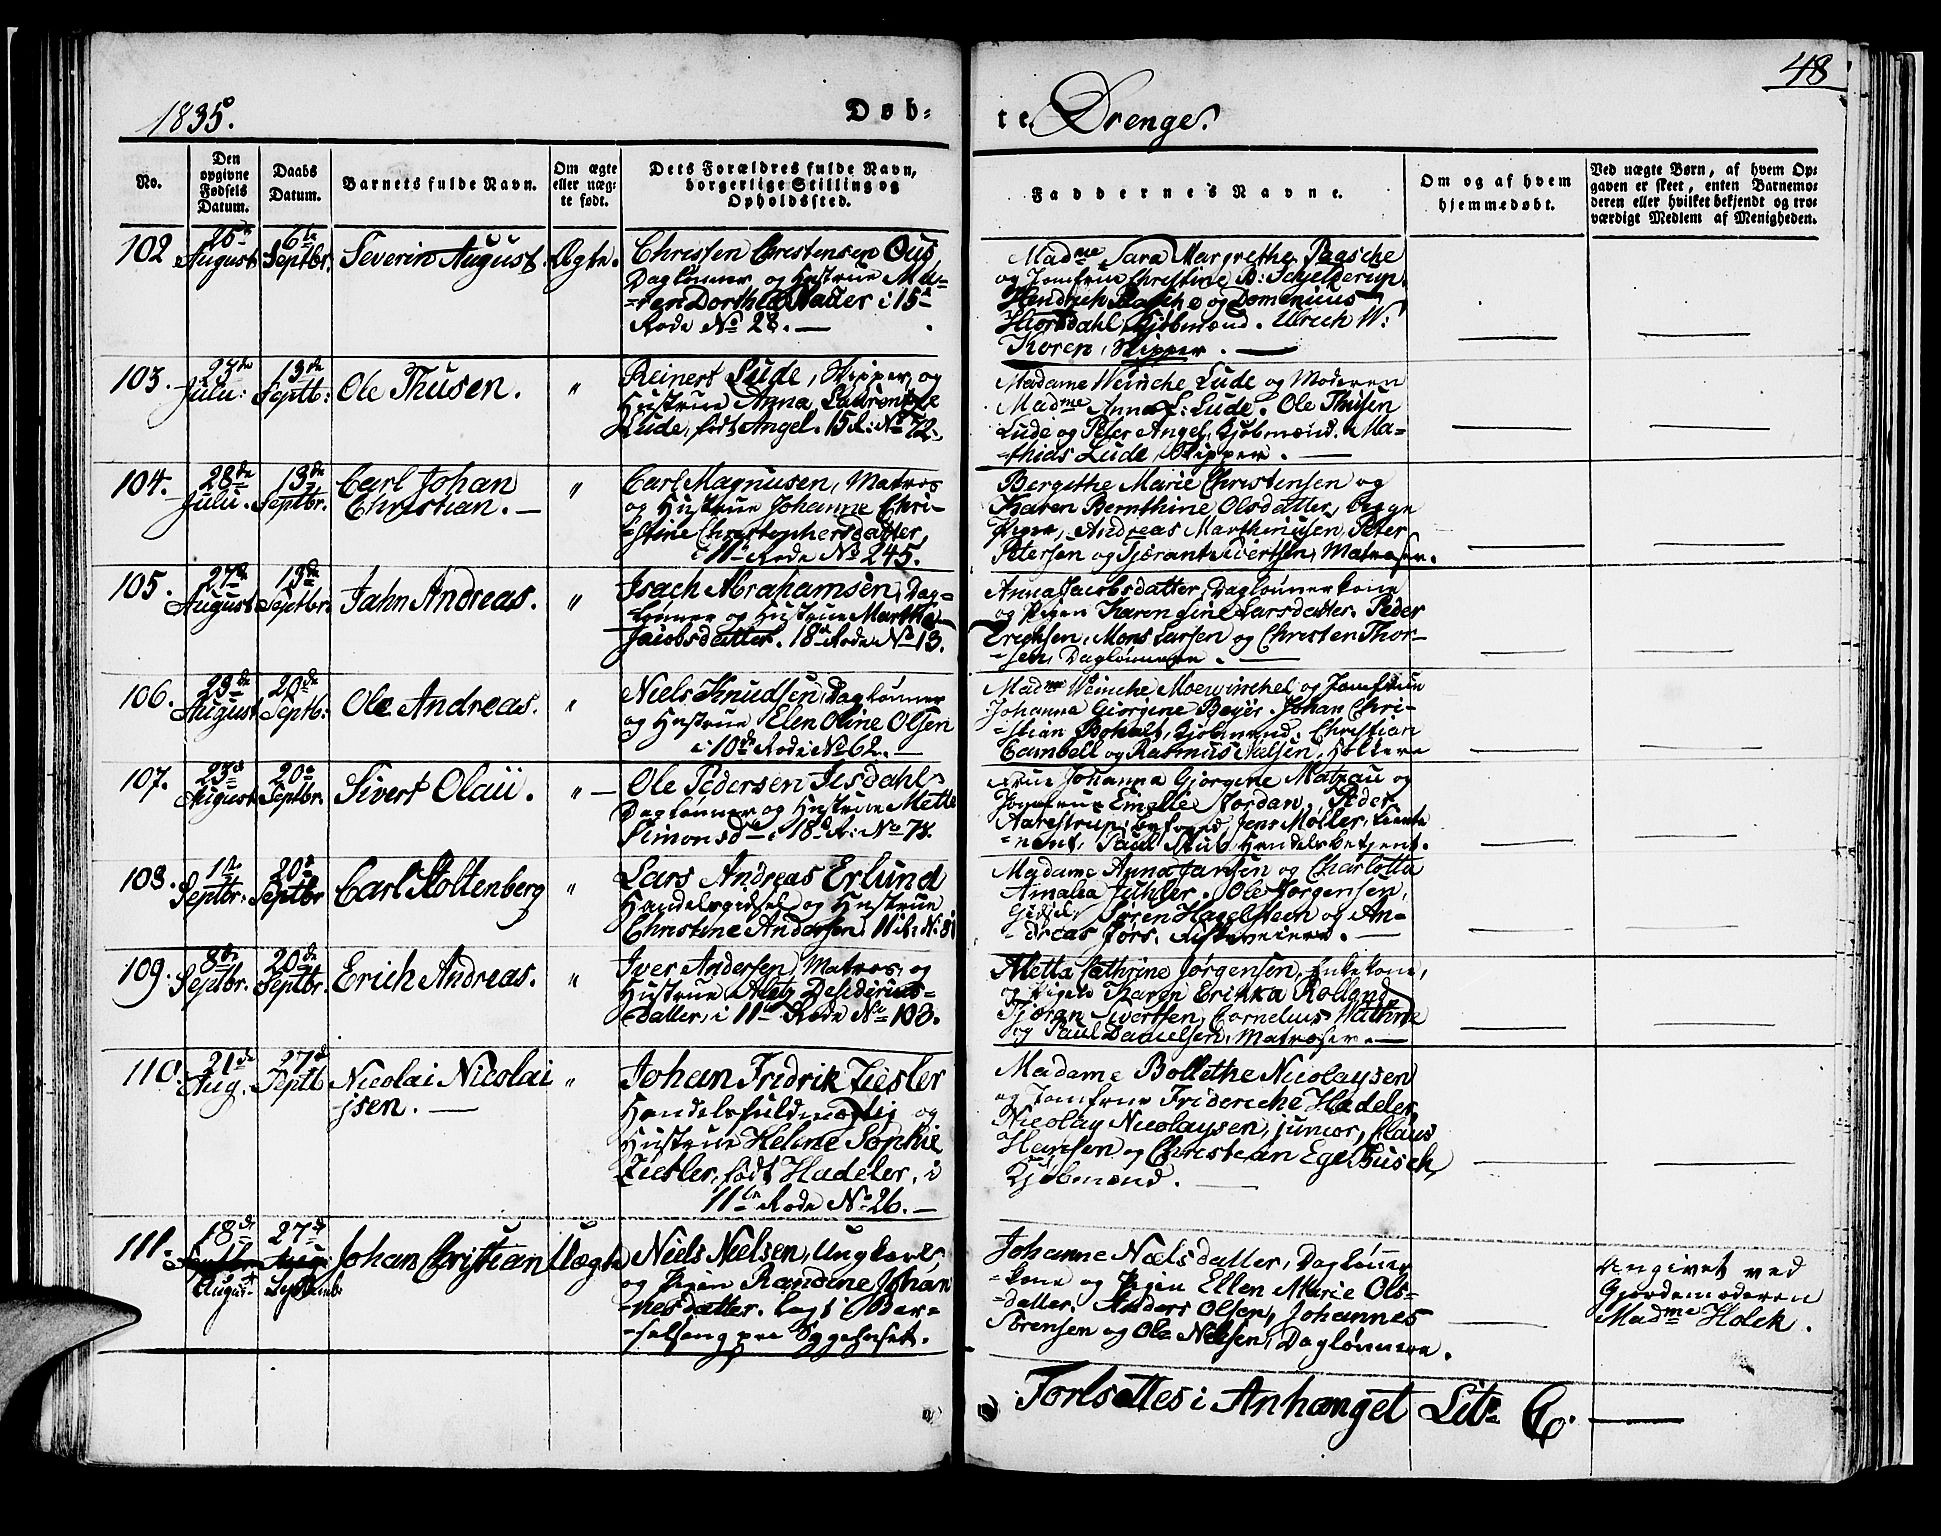 48
1835.
Døb-
te Drenge.
No.
Den opgivne Fødsels Datum.
Daabs Datum.
Barnets fulde Navn.
Om ægte eller uægte født.
Dets Forældres fulde Navn, borgerlige Stilling og Opholdssted.
Faddernes Navne.
Om og af hvem hjemmedøbt.
Ved uægte Børn, af hvem Opgaven er skeet, enten Barnemoderen eller hvilket bekjendt og troværdigt Medlem af Menigheden.
102
August
6te Septbr.
Severin August.
Ægte.
Christen Christensen
Daglønner og Hustrue Ma-
-ren Dorthea i 15de
Rode No 28.
Madme Sara Margrethe Paasche
og Jomfrue Christine B: Schjelderup,
Hendrich Paasche og Domenicus
Kjøbmænd. Ulrich W:
Koren, Skipper.
103.
23de Juli:
13de Septb:
Ole Thusen.
"
Reinert Lude, Skipper, og
Hustrue Anna Laurentze
Lude, født Angel. 15 R: No 72.
Madame Weinche Lude og Moderen
Madme Anna L: Lude. Ole Thusen
Lude og Peter Angel, Kjøbmænd. Ma-
-thias Lude, Skipper.
104.
28de Juli.
13de Septbr.
Carl Johan
Christian.
"
Carl Magnusen, Matros
og Hustrue Johanne Chri-
-stine Christophersdatter,
i 11te Rode No 245.
Bergithe Marie Christensen og
Karen Bernthine Olsdatter, begge
Piger, Andreas Marthinusen, Peter
Petersen og Tjøran Sivertsen, Matroser.
105.
27de August
13de Septbr.
Jahn Andreas.
"
Isach Abrahamsen, Dag-
-lønner og Hustrue Marthe
Jacobsdatter. 18de Rode No 13.
Anna Jacobsdatter, Daglønnerkone
og Pigen Karen Sine Larsdatter. Peder
Erichsen, Mons Larsen og Christen Thor-
-sen, Daglønnere.
106.
23de August
20de Septb:
Ole Andreas.
"
Niels Knudsen, Daglønner
og Hustrue Elen Oline Olsen
i 10de Rode No 62.
Madme Weinche Moewinchel og Jomfrue
Johanna Giørgine Beyer. Johan Chri-
-stian Kjøbmænd. Christian
Cambell og Rasmus
107.
23de August
20de Septbr.
Sivert Olaii.
"
Ole Pedersen Jesdahl
Daglønner og Hustrue Mette
Simonsd i 18de R: No
Frue Johanna Gjørgine Matzau og
Jomfrue Emelie Jordan, Peder
Aarestrup, Jens Møller, Lieute-
-nent, Paul Stub, Handelsbetjent.
108.
1te Septbr:
20de Septbr
Carl Stoltenberg
"
Lars Andreas Erlund
Handelsgidsel og Hustrue
Christine Andersen. 11 R: N: 81
Madame Anna Jansen og Charlotta
Amalia Juhler. Ole Jørgensen,
Gidsel, Søren Hagelsteen og An-
-dreas Førs.
109.
8de Septbr.
20de Septbr.
Erich Andreas.
"
Iver Andersen, Matros, og
Hustrue Aletz Desiderius-
-datter, i 11te Rode No 103.
Metta Cathrine Jørgensen, Enkekone,
og Pigen Karen Erikka Rolland
Tjøran Sivertsen, Cornelius Wathne
og Paul Danielsen, Matroser.
110.
21de Aug.
27de Septb
Nicolai Nicolai
-jsen.
"
Johan Fridrik Ziesler
Handelsfuldmægtig og
Hustrue Helene Sophie
Ziesler, født Hadeler, i
11te Rode No 26.
Madame Bollethe Nicolaysen
og Jomfrue Friderichе Hadeler,
Nicolay Nicolaysen, junior, Claus
Hansen og Christean Ege Busch
Kjøbmænd.
111.
18de
August
27de
Septemb.
Johan Christian
Uægte
Niels Nielsen, Ungkarl,
og Pigen Randine Johan-
-nesdatter. Lagt i Bar-
-selseng paa Sygehuset.
Johanne Nielsdatter, Dagløner-
-kone og Pigen Ellen Marie Ols-
-datter. Anders Olsen, Johannes
Sørensen og Ole Nielsen, Daglønnere.
Angivet ved
Gjordemoderen
Madme Holck.
Fortsættes i Anhanget Litr C.